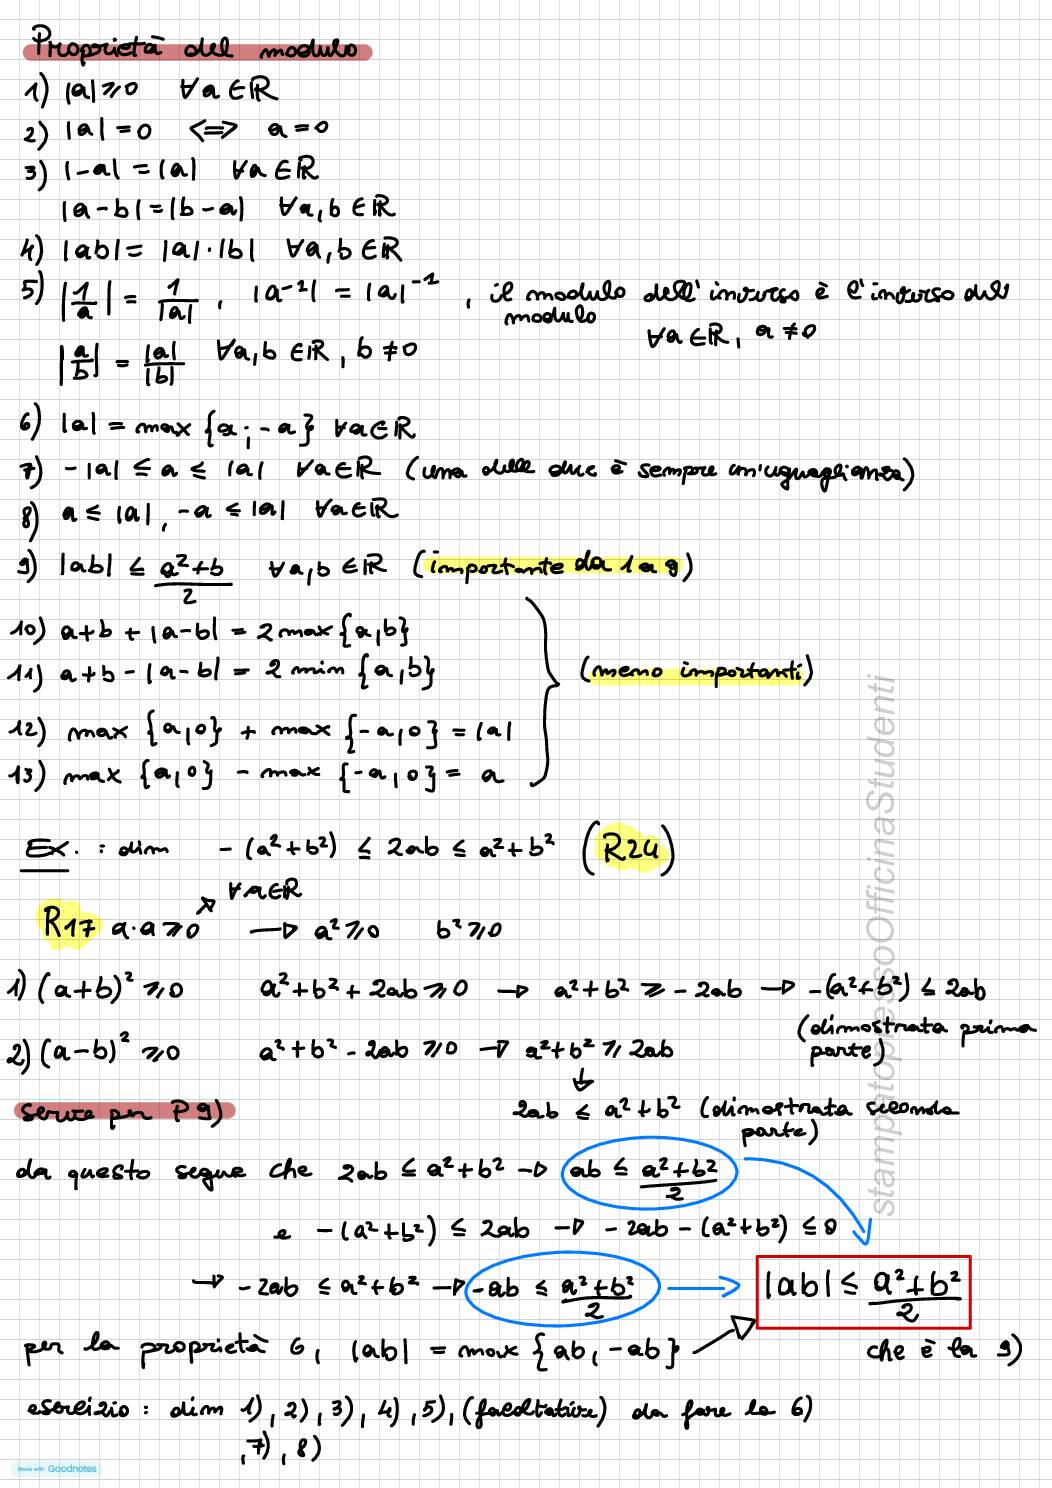 Proprietà del modulo
1) |a| ⩾ 0 ∀a ∈ ℝ
2) |a| = 0 <=> a = 0
3) |-a| = |a| ∀a ∈ ℝ
|a-b| = |b-a| ∀a,b ∈ ℝ
4) |ab| = |a|·|b| ∀a,b ∈ ℝ
5) |1/a| = 1/|a| , |a⁻¹| = |a|⁻¹ , il modulo dell'inverso è l'inverso del
modulo ∀a ∈ ℝ, a ≠ 0
|a/b| = |a|/|b| ∀a,b ∈ ℝ, b ≠ 0
6) |a| = max {a; -a} ∀a ∈ ℝ
7) -|a| ≤ a ≤ |a| ∀a ∈ ℝ (una delle due è sempre un'uguaglianza)
8) a ≤ |a|, -a ≤ |a| ∀a ∈ ℝ
9) |ab| ≤ (a²+b)/2 ∀a,b ∈ ℝ (importante da 1 a 9)
10) a+b + |a-b| = 2 max {a,b}
11) a+b - |a-b| = 2 min {a,b}
(meno importanti)
12) max {a,0} + max {-a,0} = |a|
13) max {a,0} - max {-a,0} = a
Ex. : dim -(a²+b²) ≤ 2ab ≤ a²+b² (R24)
∀a ∈ ℝ
R17 a·a ⩾ 0 → a² ⩾ 0 b² ⩾ 0
1) (a+b)² ⩾ 0 a²+b²+2ab ⩾ 0 → a²+b² ⩾ -2ab → -(a²+b²) ≤ 2ab
(dimostrata prima
parte)
2) (a-b)² ⩾ 0 a²+b²-2ab ⩾ 0 → a²+b² ⩾ 2ab
↓
serve per P 9) 2ab ≤ a²+b² (dimostrata seconda
parte)
da questo segue che 2ab ≤ a²+b² → ab ≤ (a²+b²)/2
e -(a²+b²) ≤ 2ab → -2ab-(a²+b²) ≤ 0
→ -2ab ≤ a²+b² → -ab ≤ (a²+b²)/2 → |ab| ≤ (a²+b²)/2
per la proprietà 6, |ab| = max {ab, -ab} che è la 9)
esercizio: dim 1), 2), 3), 4), 5), (facoltative) da fare la 6)
, 7), 8)
stampatopressoOfficinaStudenti
Made with Goodnotes